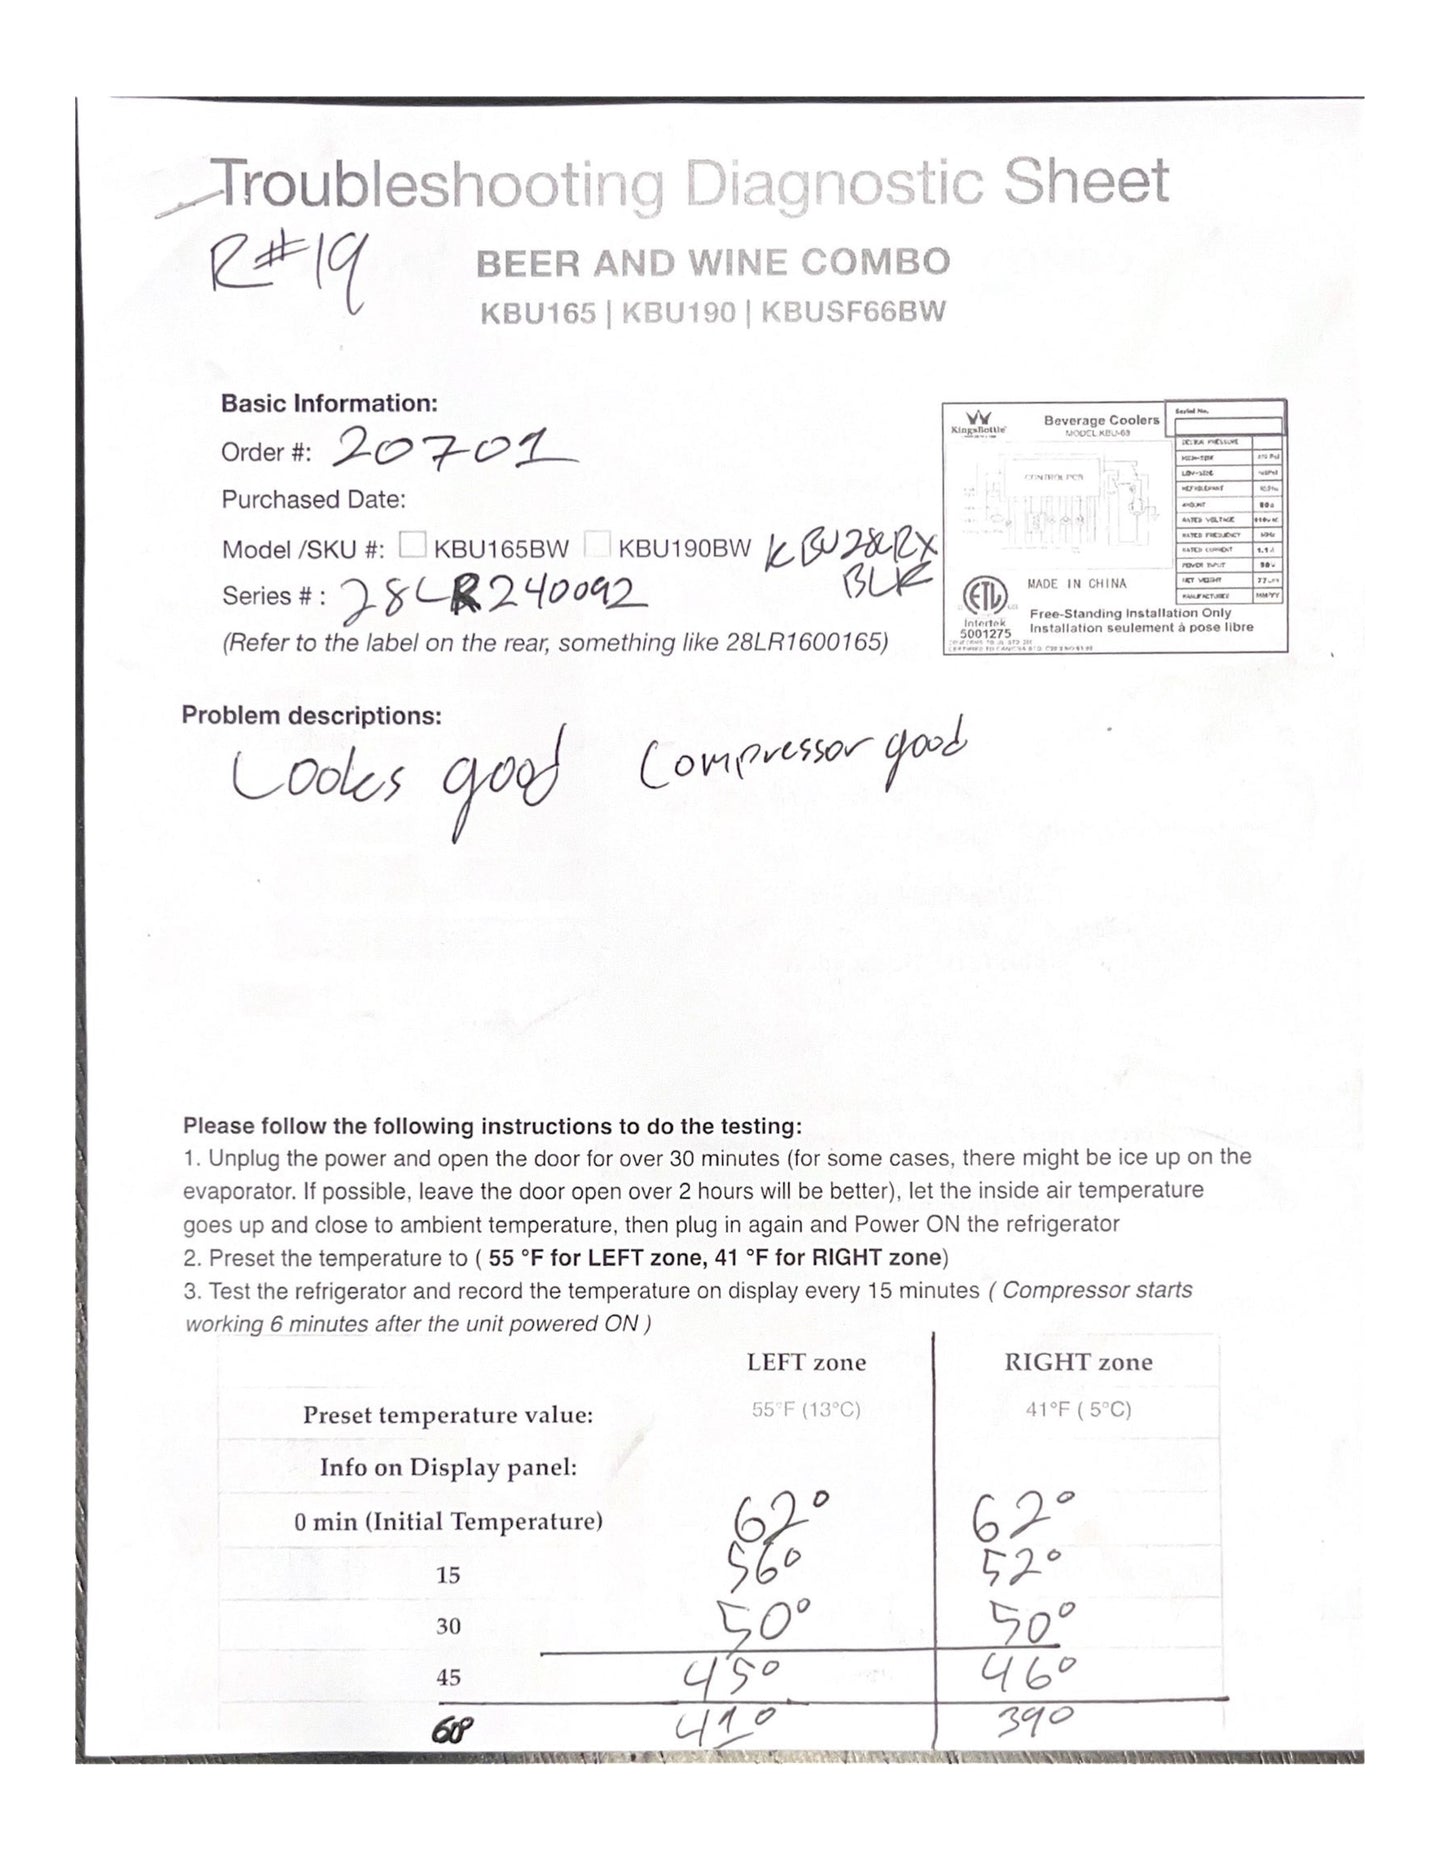 Troubleshooting Diagnostic Sheet
R#19
BEER AND WINE COMBO
KBU165 | KBU190 | KBUSF66BW
Basic Information:
Order #: 20701
Purchased Date:
Model /SKU #: KBU165BW KBU190BW KBU28LRX
BLK
Series # : 28LR240092
(Refer to the label on the rear, something like 28LR1600165)
KingsBottle
Beverage Coolers
MODEL KBU-63
Serial No.
CONTROL PCB
HIGH-SIDE
LOW-SIDE
AMOUNT
RATED VOLTAGE
RATED FREQUENCY
RATED CURRENT
POWER INPUT
NET WEIGHT
ETL
Intertek
5001275
MADE IN CHINA
Free-Standing Installation Only
Installation seulement á pose libre
Problem descriptions:
Looks good Compressor good
Please follow the following instructions to do the testing:
1. Unplug the power and open the door for over 30 minutes (for some cases, there might be ice up on the
evaporator. If possible, leave the door open over 2 hours will be better), let the inside air temperature
goes up and close to ambient temperature, then plug in again and Power ON the refrigerator
2. Preset the temperature to ( 55 °F for LEFT zone, 41 °F for RIGHT zone)
3. Test the refrigerator and record the temperature on display every 15 minutes ( Compressor starts
working 6 minutes after the unit powered ON )
LEFT zone RIGHT zone
Preset temperature value: 55°F (13°C) 41°F ( 5°C)
Info on Display panel:
0 min (Initial Temperature) 62° 62°
15 56° 52°
30 50° 50°
45 45° 46°
60 41° 39°